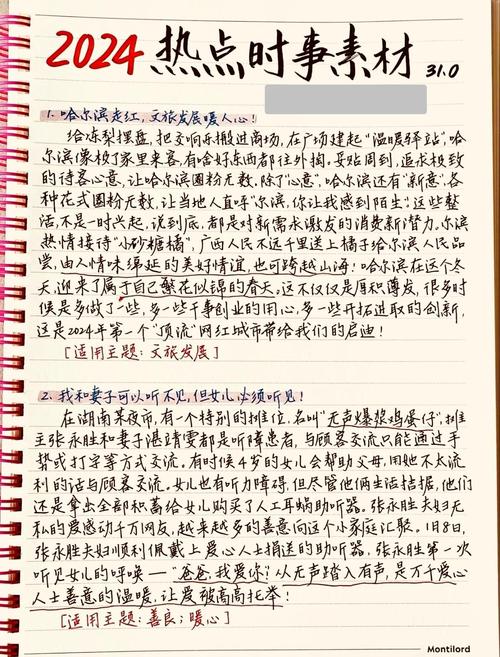 2024 热点时事素材 31.0
1. 哈尔滨走红,文旅发展暖人心!
给冻梨摆盘,把交响乐搬进商场,在广场建起“温暖驿站”,哈
尔滨像极了家里来客,有啥好东西都往外掏。妥贴周到,追求极致
的待客心意,让哈尔滨圈粉无数,除了“心意”,哈尔滨还有“新意”,各
种花式圈粉无数,让当地人直呼“尔滨,你让我感到陌生”。这些整
活,不是一时兴起,说到底,都是对新需求激发的消费新潜力。尔滨
热情接待“小砂糖橘”,广西人民不远千里送上橘子给尔滨人民品
尝,由人情味绵延的美好情谊,也可跨越山海!哈尔滨在这个冬
天,迎来了属于自己繁花似锦的春天,这不仅仅是厚积薄发,很多时
候是多做了一些,多一些干事创业的用心,多一些开拓进取的创新,
这是2024年第一个“顶流”网红城市带给我们的启迪!
[适用主题:文旅发展]
2. 我和妻子可以听不见,但女儿必须听见!
在湖南某夜市,有一个特别的摊位,名叫“无声爆浆鸡蛋仔”,摊
主张永胜和妻子湛靖雯都是听障患者,与顾客交流只能通过手
势或打字等方式交流。有时候4岁的女儿会帮助父母,用她不太流
利的话与顾客交流。女儿也有听力障碍,但尽管他俩生活拮据,他们
还是拿出全部积蓄给女儿购买了人工耳蜗助听器。张永胜夫妇无
私的爱感动千万网友,越来越多的善意向这个小家庭汇聚。1月8日,
张永胜夫妇顺利佩戴上爱心人士捐送的助听器。张永胜第一次
听见女儿的呼唤——“爸爸,我爱你!”从无声踏入有声,是万千爱心
人士善意的温暖,让爱被高高托举!
[适用主题:善良;暖心]
Montilord